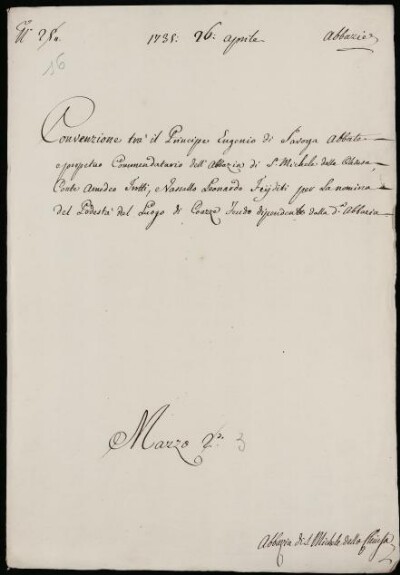 N 25.
1735: 26. aprile
Abbazie
16
Convenzione tra' il Principe Eugenio di Savoya Abbate
e perpetuo Commendatario dell'Abbazia di S. Michele della Chiusa,
Conte Amedeo Trotti, e Vassallo Leonardo per la nomina
del Podestà del Luogo di Feudo dipendente dalla d.ª Abbazia
Marzo 2º. 3
Abbazia di S. Michele della Chiusa